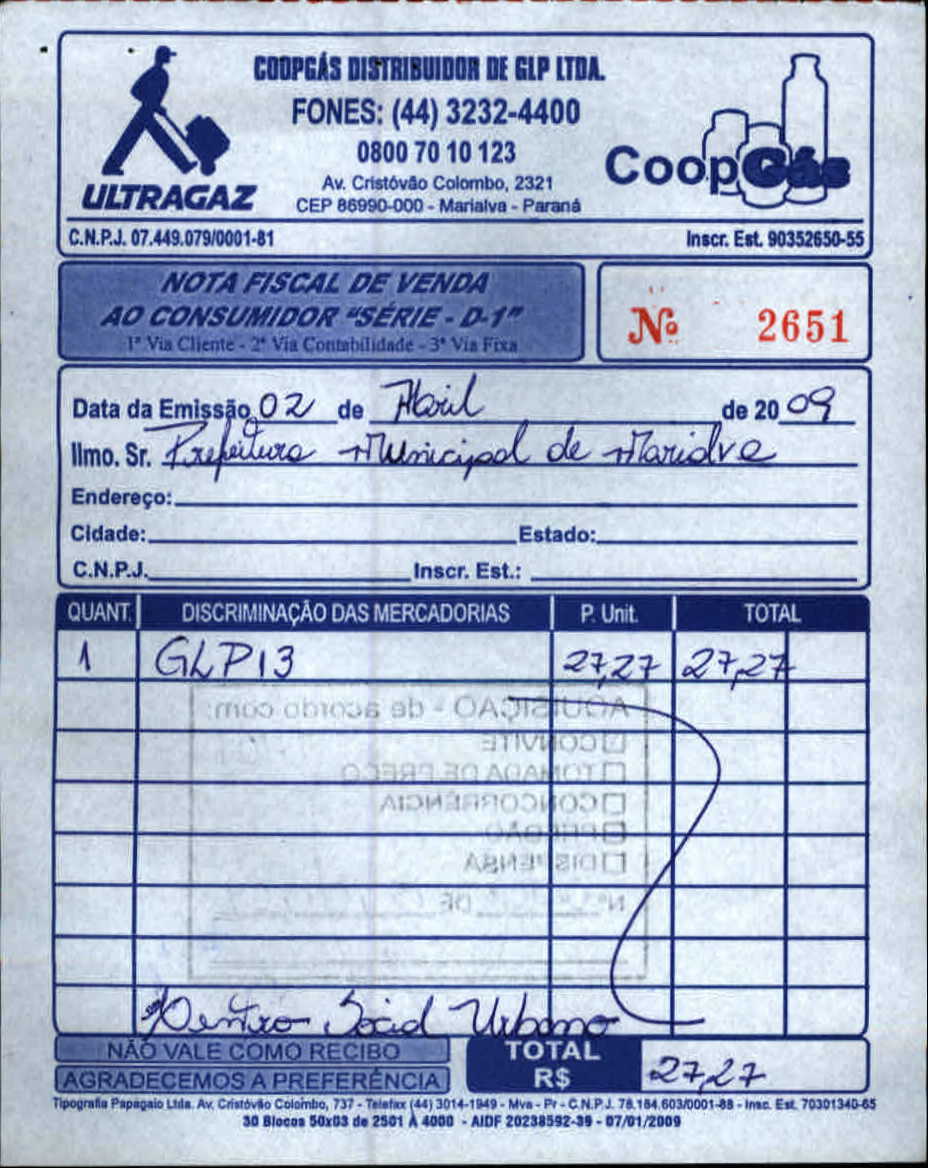 COOPGÁS DISTRIBUIDOR DE GLP LTDA.
FONES: (44) 3232-4400
0800 70 10 123
Av. Cristóvão Colombo, 2321
CEP 86990-000 - Marialva - Paraná
ULTRAGAZ
CoopGás
C.N.P.J. 07.449.079/0001-81 Inscr. Est. 90352650-55
NOTA FISCAL DE VENDA
AO CONSUMIDOR "SÉRIE - D-1"
1ª Via Cliente - 2ª Via Contabilidade - 3ª Via Fixa
Nº 2651
Data da Emissão 02 de Abril de 2009
Ilmo. Sr. Prefeitura Municipal de Marialva
Endereço:
Cidade: Estado:
C.N.P.J. Inscr. Est.:
QUANT. DISCRIMINAÇÃO DAS MERCADORIAS P. Unit. TOTAL
1 GLP13 27,27 27,27
AQUISIÇÃO - de acordo com:
CONVITE
TOMADA DE PREÇO
CONCORRÊNCIA
PREGÃO
DISPENSA
Nº DE
Centro Social Urbano
NÃO VALE COMO RECIBO
AGRADECEMOS A PREFERÊNCIA
TOTAL
R$ 27,27
Tipografia Papagaio Ltda. Av. Cristóvão Colombo, 737 - Telefax (44) 3014-1949 - Mva - Pr - C.N.P.J. 78.184.603/0001-88 - Insc. Est. 70301340-65
30 Blocos 50x03 de 2501 À 4000 - AIDF 20238592-39 - 07/01/2009